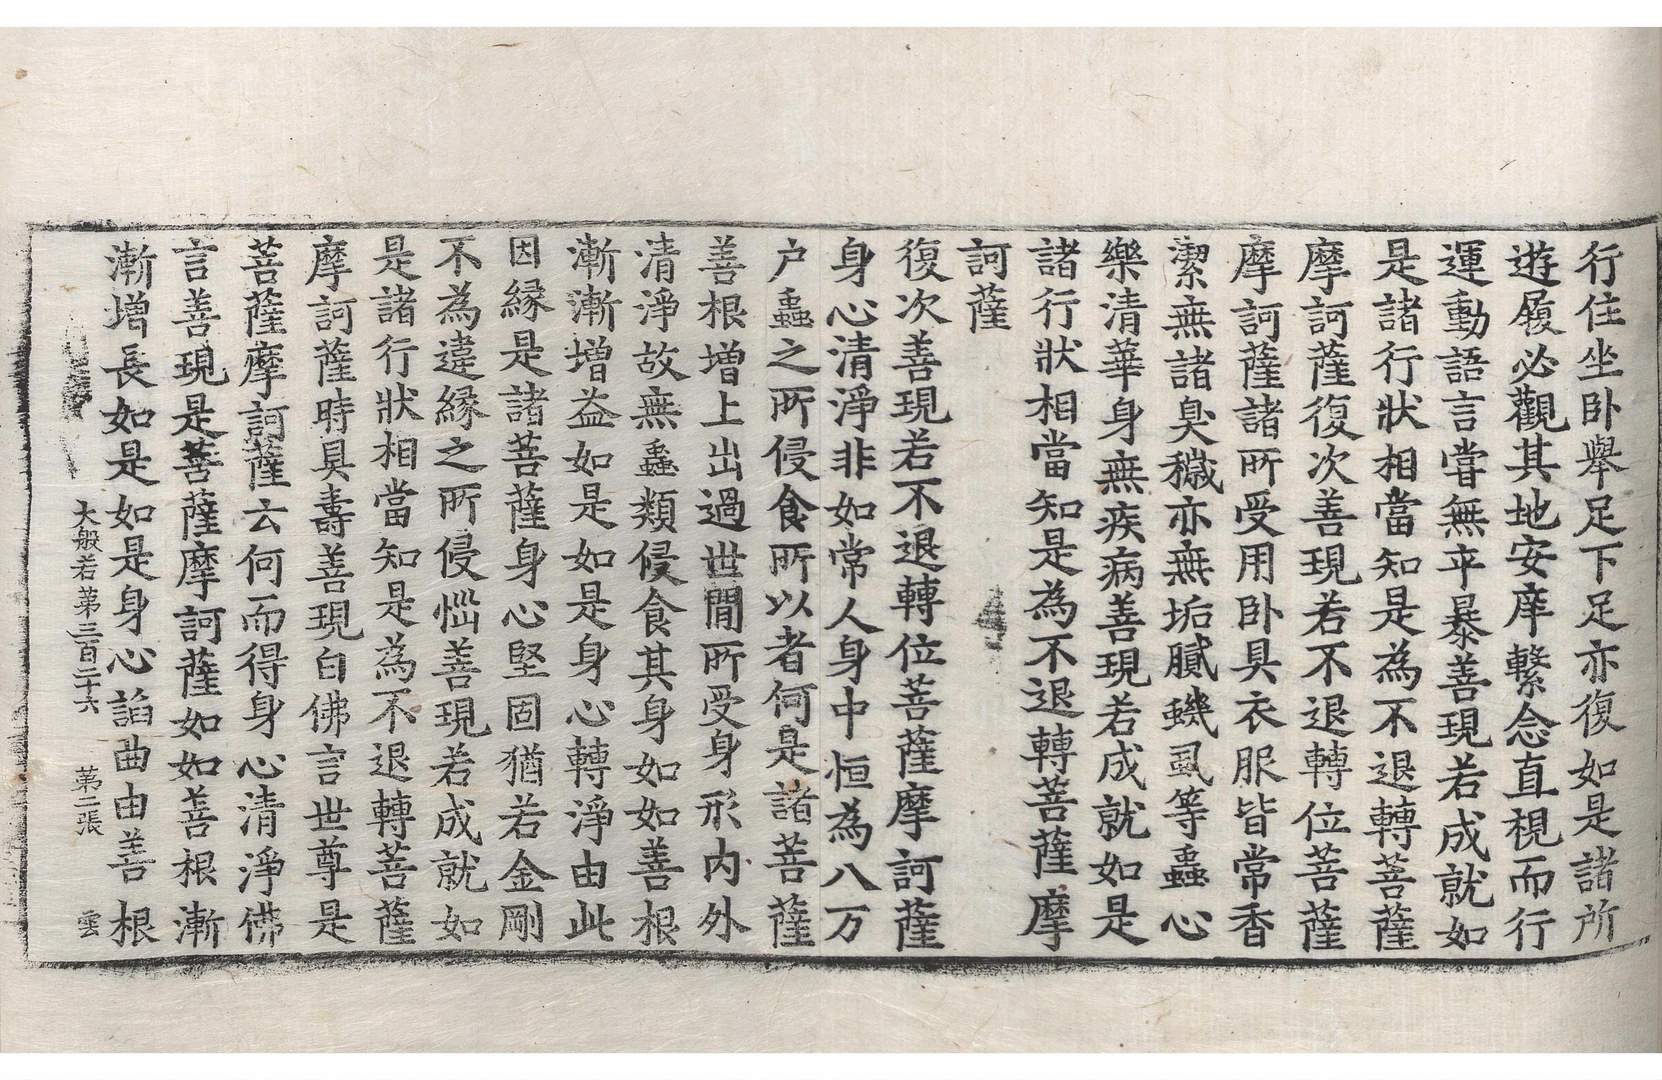 行住坐卧舉足下足亦復如是諸所
遊履必觀其地安庠繫念直視而行
運動語言嘗無卒暴善現若成就如
是諸行狀相當知是為不退轉菩薩
摩訶薩復次善現若不退轉位菩薩
摩訶薩諸所受用卧具衣服皆常香
潔無諸臭穢亦無垢膩蟣虱等蟲心
樂清華身無疾病善現若成就如是
諸行狀相當知是為不退轉菩薩摩
訶薩
復次善現若不退轉位菩薩摩訶薩
身心清淨非如常人身中恒為八万
户蟲之所侵食所以者何是諸菩薩
善根增上出過世間所受身形内外
清淨故無蟲類侵食其身如如善根
漸漸增益如是如是身心轉淨由此
因緣是諸菩薩身心堅固猶若金剛
不為違緣之所侵惱善現若成就如
是諸行狀相當知是為不退轉菩薩
摩訶薩時具壽善現白佛言世尊是
菩薩摩訶薩云何而得身心清淨佛
言善現是菩薩摩訶薩如如善根漸
漸增長如是如是身心諂曲由善根
大般若第三百二十六 第二張 雲